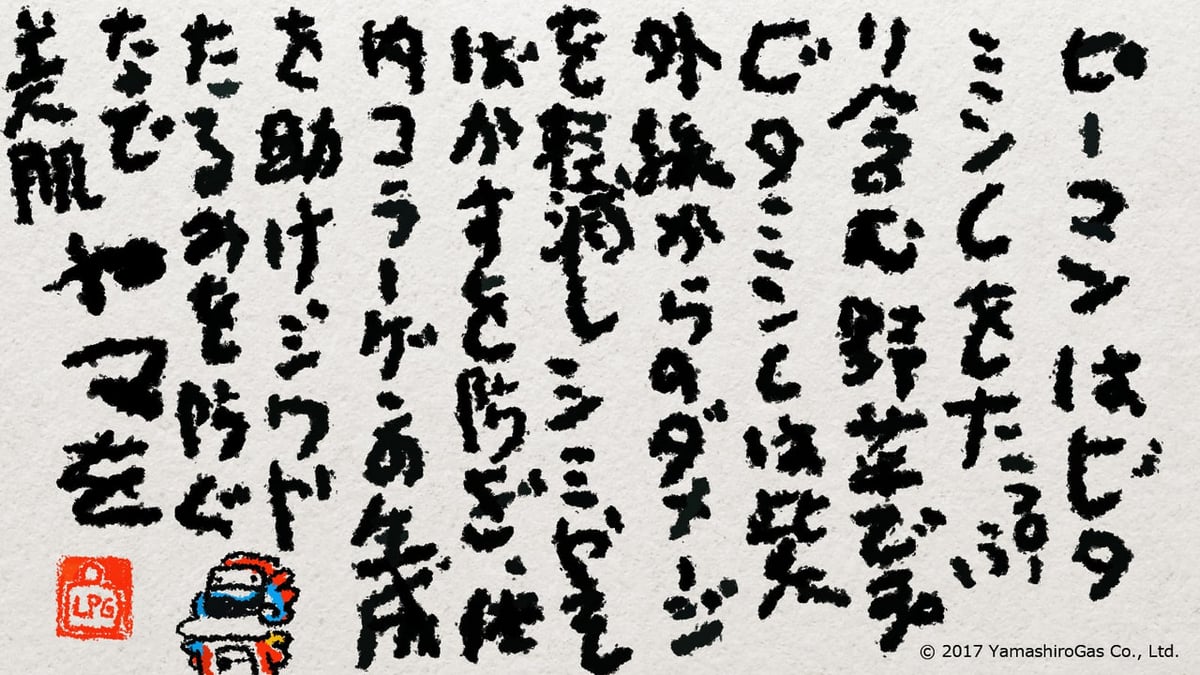 ピーマンはビタ
ミンCをたっぷ
り含む野菜です
ビタミンCは紫
外線からのダメージ
を軽減し シミやそ
ばかすを防ぎ、体
内コラーゲンの生成
を助け
たるみを防ぐ
美肌
ヤマを
LPG
© 2017 YamashiroGas Co., Ltd.